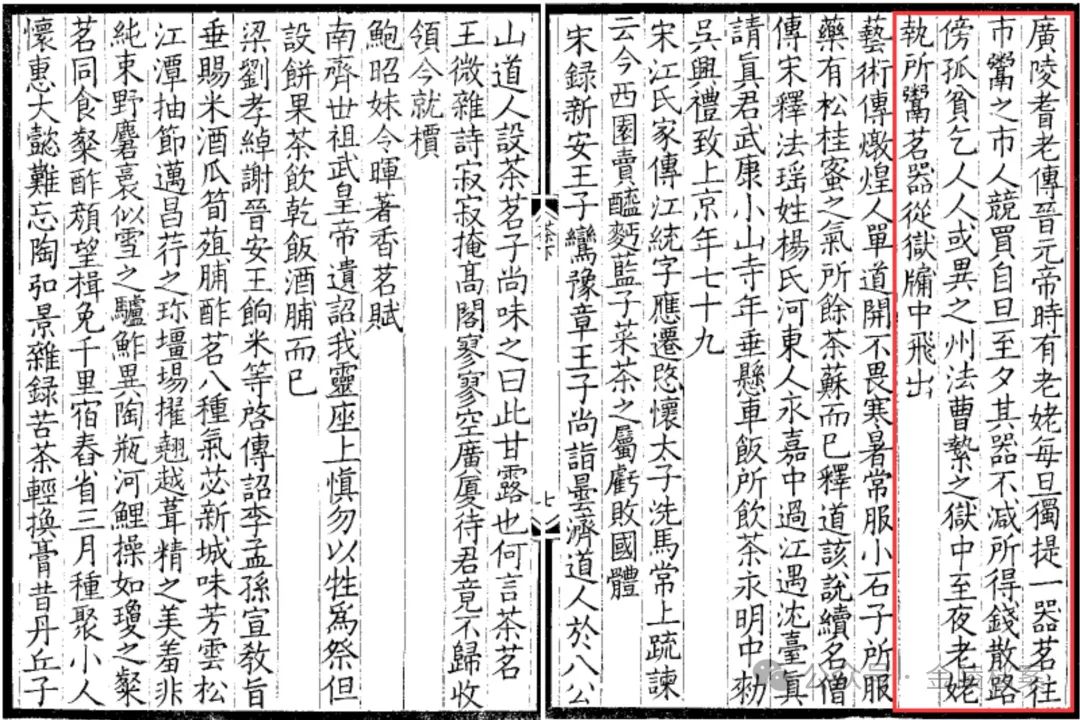 廣陵耆老傳晉元帝時有老姥每旦獨提一器茗往
市鬻之市人競買自旦至夕其器不減所得錢散路
傍孤貧乞人人或異之州法曹縶之獄中至夜老姥
執所鬻茗器從獄牖中飛出
藝術傳燉煌人單道開不畏寒暑常服小石子所服
藥有松桂蜜之氣所餘茶蘇而已釋道該說續名僧
傳宋釋法瑶姓楊氏河東人永嘉中過江遇沈臺眞
請眞君武康小山寺年垂懸車飯所飲茶永明中勑
吳興禮致上京年七十九
宋江氏家傳江統字應遷愍懷太子洗馬常上疏諫
云今西園賣醯麪藍子菜茶之屬虧敗國體
宋録新安王子鸞豫章王子尚詣曇濟道人於八公
茶下
七
山道人設茶茗子尚味之曰此甘露也何言茶茗
王微雜詩寂寂掩髙閣寥寥空廣厦待君竟不歸收
領今就檟
鮑昭妹令暉著香茗賦
南齊世祖武皇帝遺詔我靈座上慎勿以牲爲祭但
設餅果茶飲乾飯酒脯而已
梁劉孝綽謝晉安王餉米等啓傳詔李孟孫宣敎旨
垂賜米酒瓜筍葅脯酢茗八種氣苾新城味芳雲松
江潭抽節邁昌荇之珎壃場擢翹越葺精之美羞非
純束野麏裛似雪之驢鮓異陶瓶河鯉操如瓊之粲
茗同食粲酢顔望楫免千里宿舂省三月種聚小人
懷惠大懿難忘陶弘景雜録苦茶輕換膏昔丹丘子
公众号 · 金